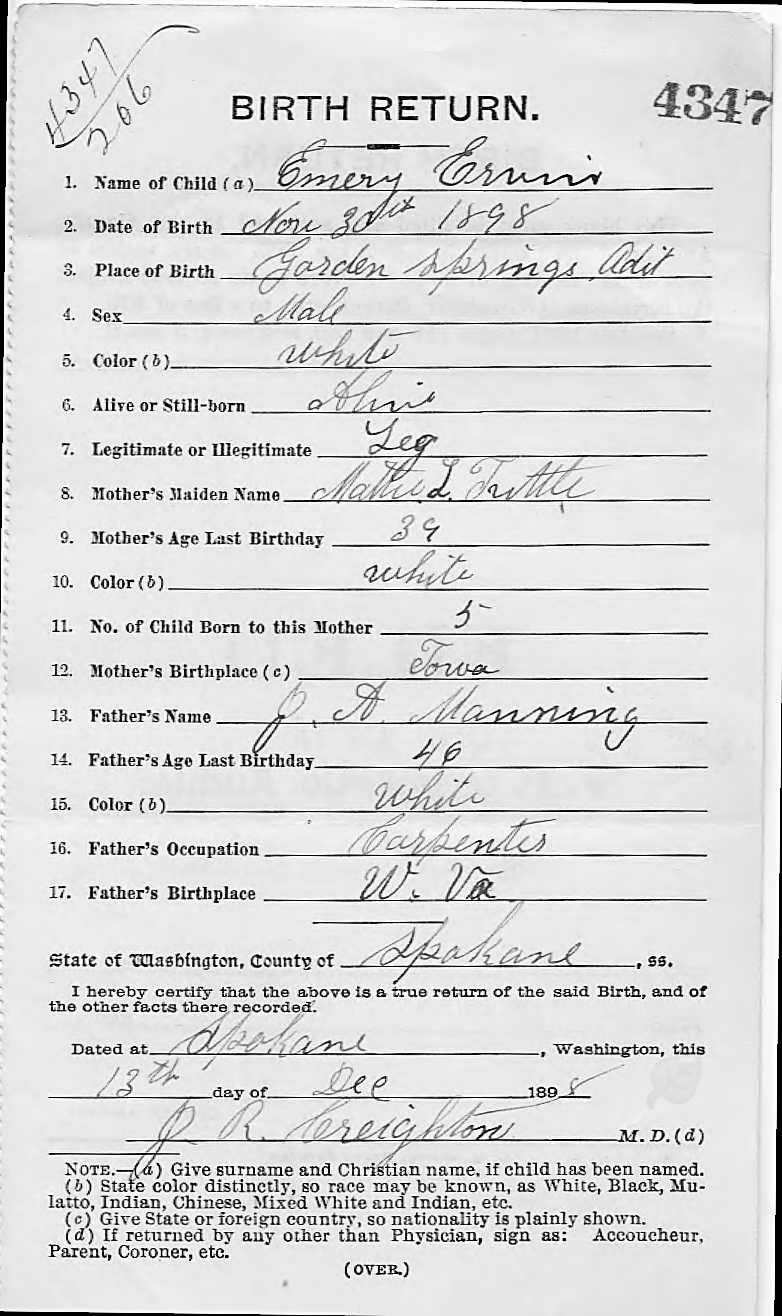 4347
206
BIRTH RETURN.
4347
1. Name of Child (a) Emery Erwin
2. Date of Birth Nov. 30th 1898
3. Place of Birth Garden Springs Adit
4. Sex Male
5. Color (b) White
6. Alive or Still-born Alive
7. Legitimate or Illegitimate Leg
8. Mother's Maiden Name Mattie L. Tuttle
9. Mother's Age Last Birthday 39
10. Color (b) White
11. No. of Child Born to this Mother 5
12. Mother's Birthplace (c) Iowa
13. Father's Name J. A. Manning
14. Father's Age Last Birthday 46
15. Color (b) White
16. Father's Occupation Carpenter
17. Father's Birthplace W. Va
State of Washington, County of Spokane, ss.
I hereby certify that the above is a true return of the said Birth, and of
the other facts there recorded.
Dated at Spokane, Washington, this
13th day of Dec 1898
J R. Creighton M. D. (d)
NOTE.—(a) Give surname and Christian name, if child has been named.
(b) State color distinctly, so race may be known, as White, Black, Mu-
latto, Indian, Chinese, Mixed White and Indian, etc.
(c) Give State or foreign country, so nationality is plainly shown.
(d) If returned by any other than Physician, sign as: Accoucheur,
Parent, Coroner, etc.
(OVER.)